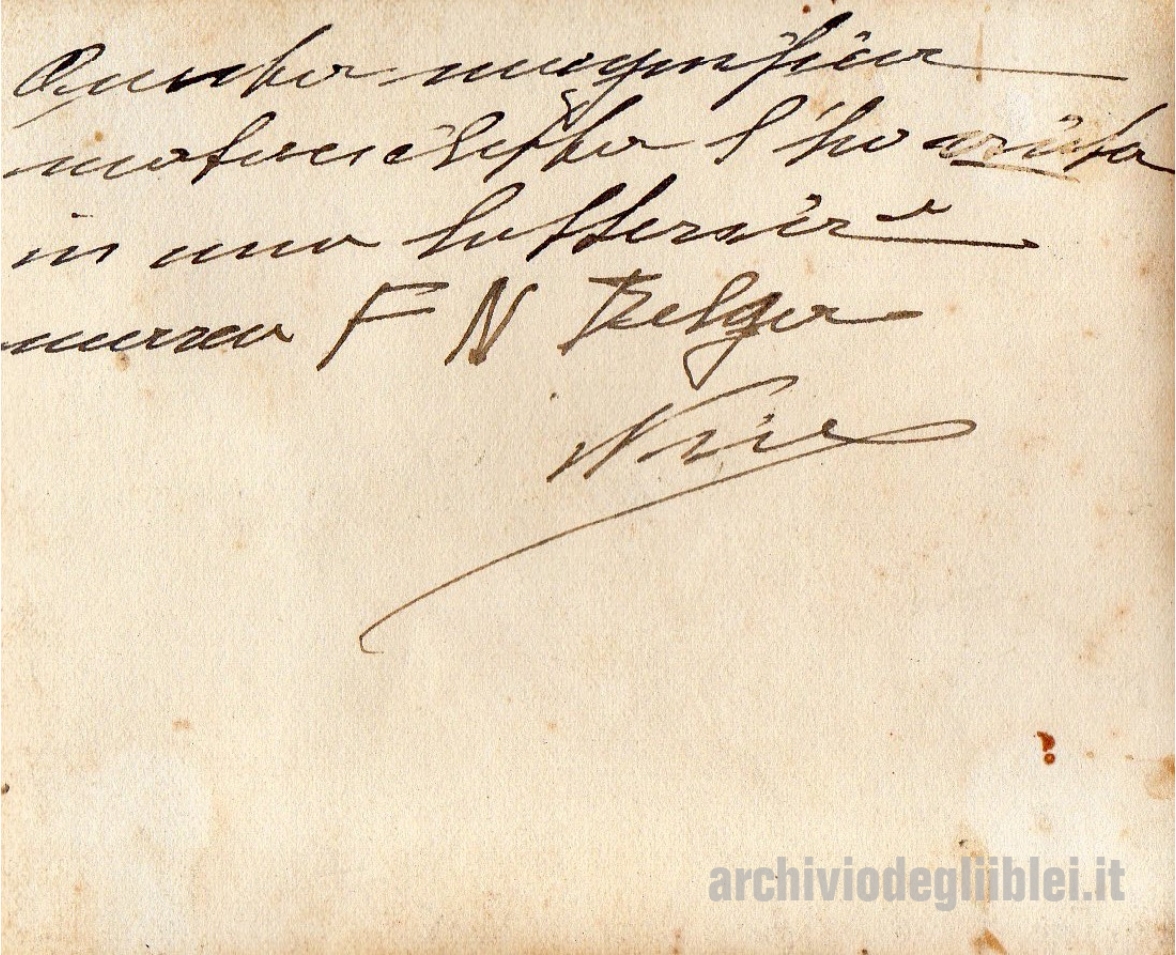 Questa magnifica
motocicletta l'ho vinta
in una lotteria
marca F N Belga
archiviodegliiblei.it